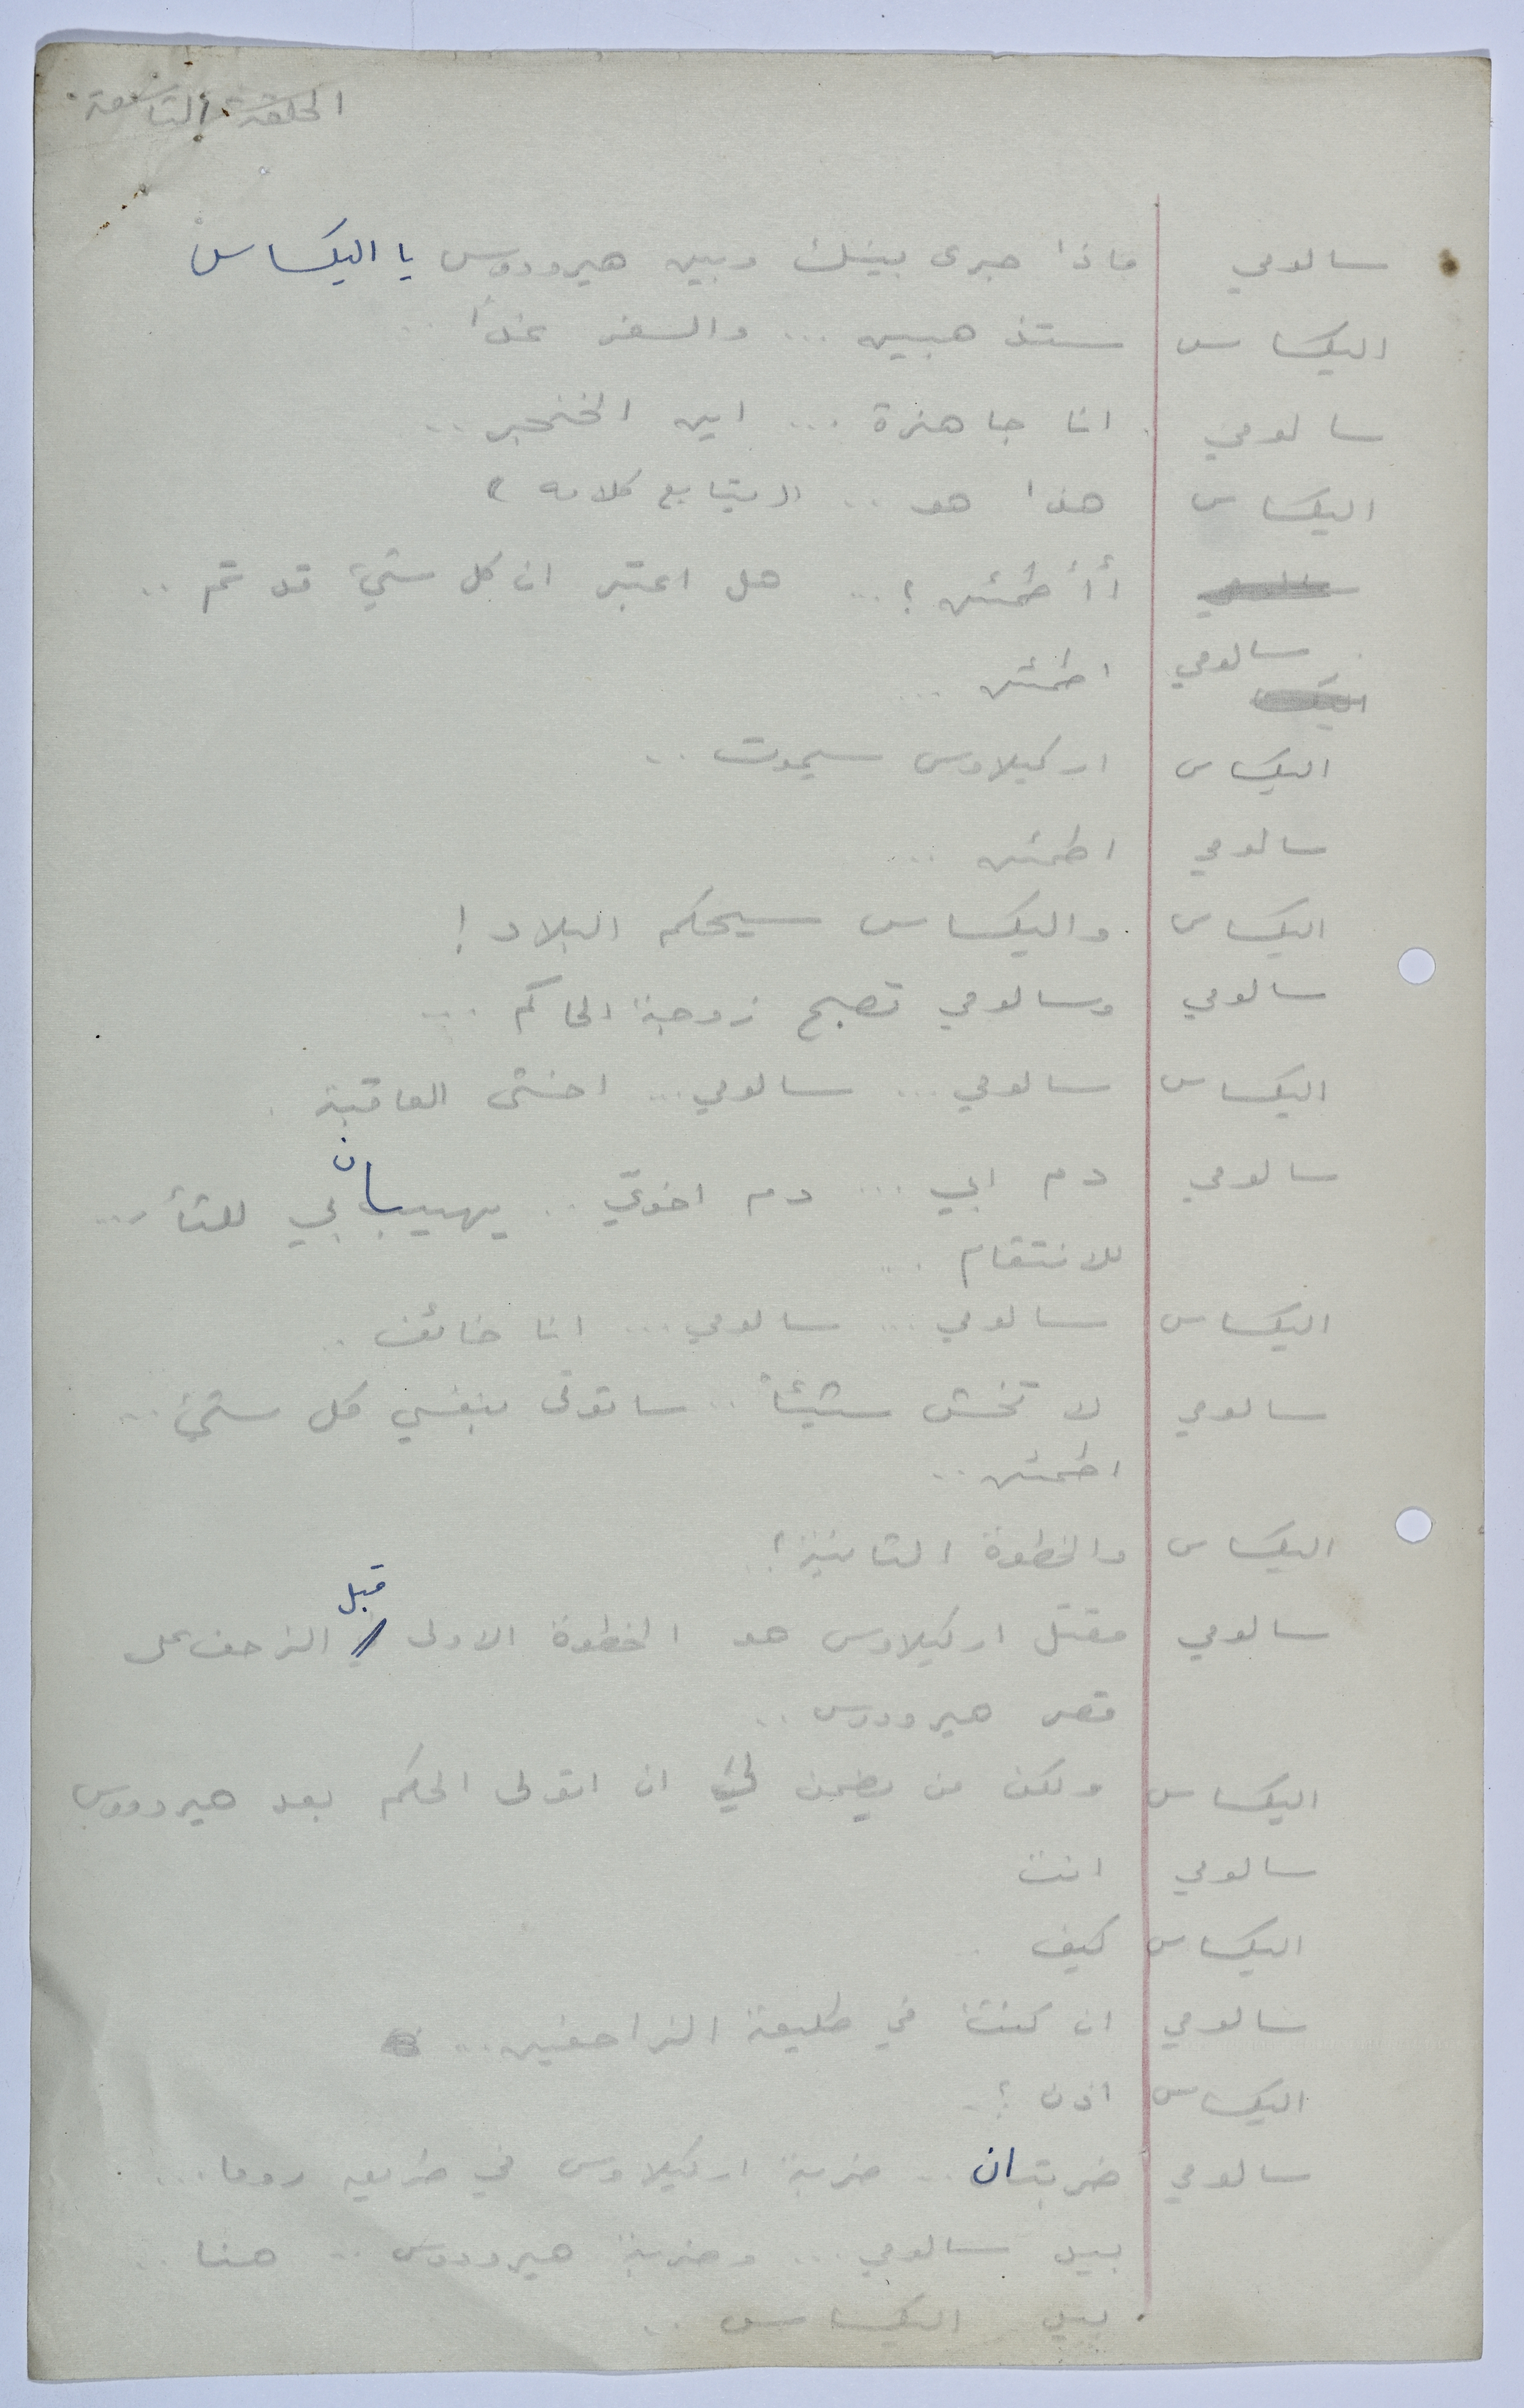 الحلقة التاسعة
سالومي ماذا جرى بينك وبين هيرودوس يا اليكساس
اليكساس ستذهبين ... والسفر غداً ..
سالومي انا جاهزة ... اين الخنجر ..
اليكساس هذا هو .. (( يتابع كلامه ))
أأطمئن ؟ ... هل اعتبر ان كل شيء قد تم ..
سالومي اطمئن ...
اليكساس اركيلاوس سيموت ..
سالومي اطمئن ...
اليكساس واليكساس سيحكم البلاد !
سالومي وسالومي تصبح زوجة الحاكم ...
اليكساس سالومي ... سالومي ... اخشى العاقبة .
سالومي دم ابي ... دم اخوتي .. يهيبان بي للثأر ...
للانتقام ...
اليكساس سالومي ... سالومي ... انا خائف .
سالومي لا تخش شيئاً .. ساتولى بنفسي كل شيء ..
اطمئن ..
اليكساس والخطوة الثانية ؟
سالومي مقتل اركيلاوس هو الخطوة الاولى قبل الزحف على
قصر هيرودوس ..
اليكساس ولكن من يضمن لي ان اتولى الحكم بعد هيرودوس
سالومي انت
اليكساس كيف ..
سالومي ان كنت في طليعة الزاحفين ...
اليكساس اذن ؟ .
سالومي ضربتان .. ضربة اركيلاوس في طريق روما ...
بيد سالومي ... وضربة هيرودوس .. هنا ..
بيد اليكساس ..